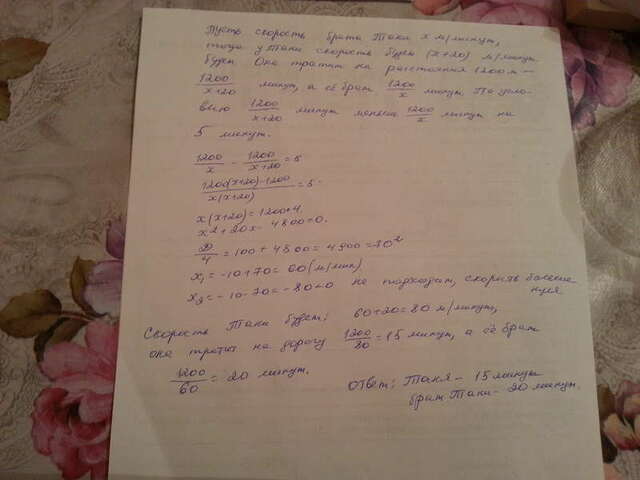 Пусть скорость брата Тани x м/минут,
тогда у Тани скорость будет (x+20) м/минут.
будет Она тратит на расстояния 1200 м —
1200/x+20 минут, а её брат 1200/x минут. По усло-
вию 1200/x+20 минут меньше 1200/x минут на
5 минут.
1200/x - 1200/x+20 = 5
1200(x+20)-1200/x(x+20) = 5
x(x+20) = 1200+4
x²+20x - 4800=0.
D/4 = 100 + 4800 = 4900 = 70²
x₁ = -10+70 = 60 (м/мин)
x₂ = -10-70 = -80<0 не подходит, скорость больше
нуля
Скорость Тани будет: 60+20=80 м/минут,
она тратит на дорогу 1200/80 = 15 минут, а её брат
1200/60 = 20 минут.
Ответ: Таня - 15 минут
брат Тани - 20 минут.